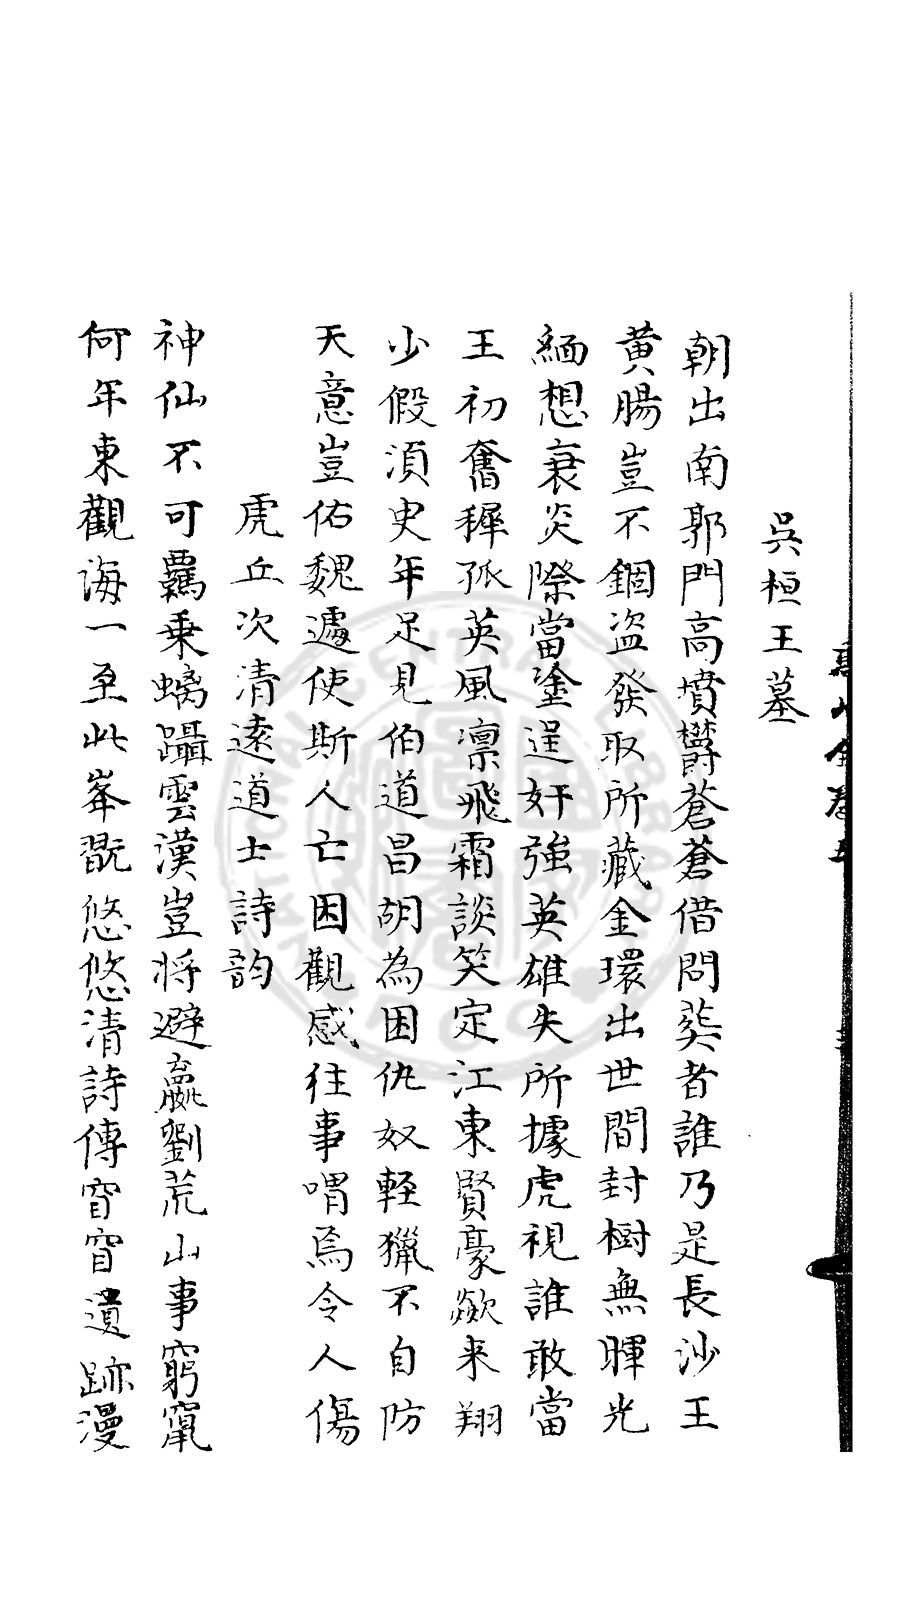 吳桓王墓
朝出南郭門高墳欝蒼蒼借問葬者誰乃是長沙王
黄腸豈不錮盗發取所藏金環出世間封樹無暉光
緬想衰炎際當塗逞奸強英雄失所據虎視誰敢當
王初奮稺孤英風凛飛霜談笑定江東賢豪歘来翔
少假須臾年足見伯道昌胡為困仇奴輕獵不自防
天意豈佑魏遽使斯人亡因觀感往事喟焉令人傷
虎丘次清逺道士詩韵
神仙不可羁乗螭躡雲漢豈将避嬴劉荒山事窮竄
何年東觀海一至此峯翫悠悠清詩傳窅窅遺跡漫